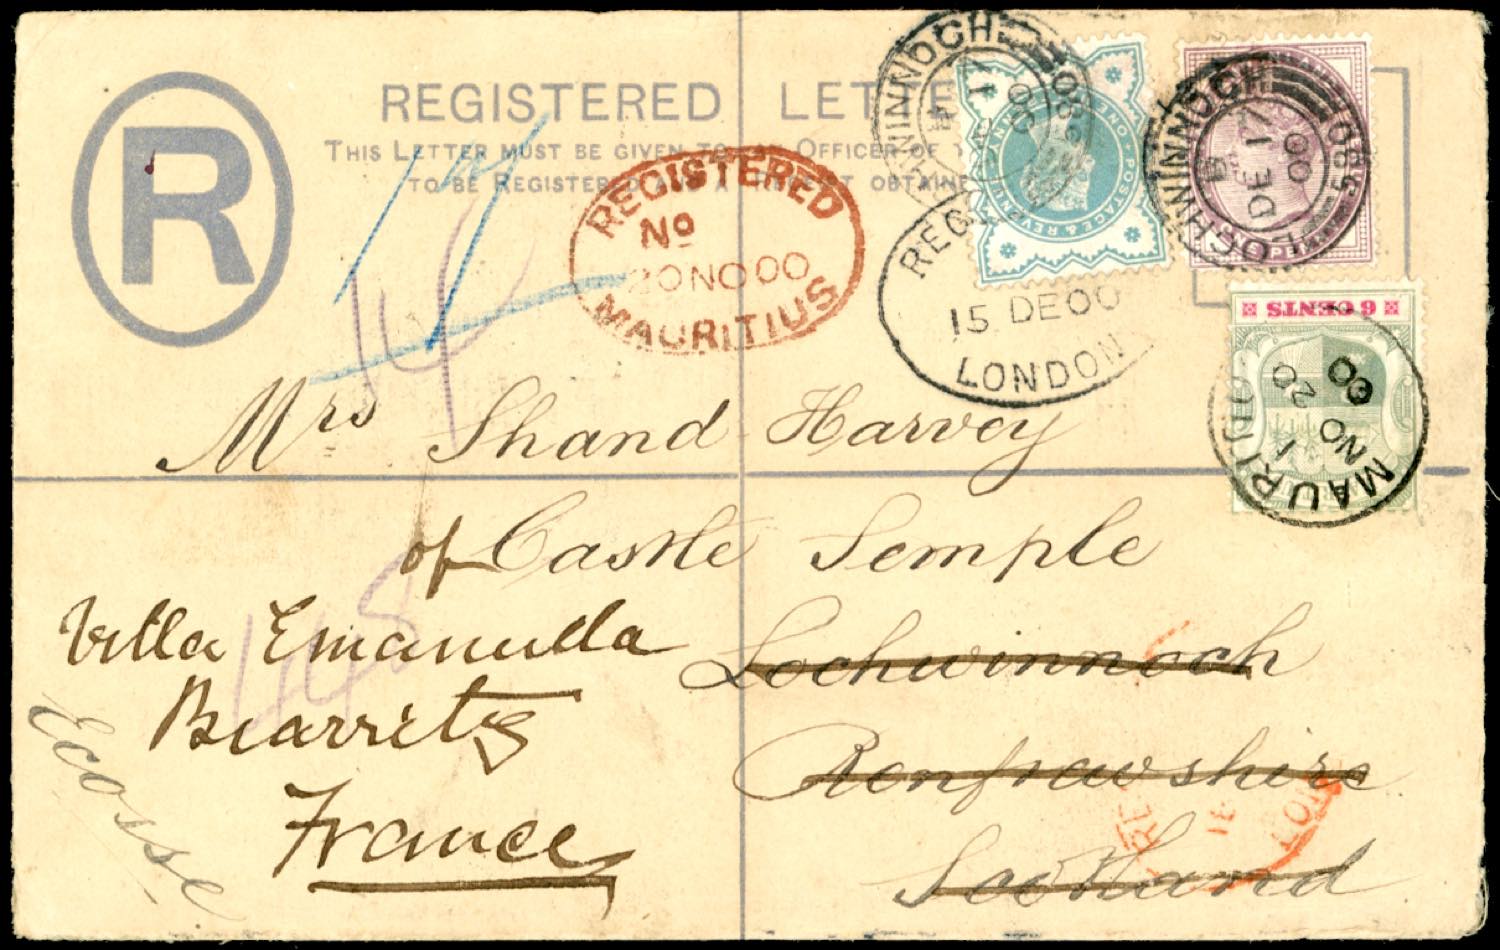 REGISTERED LETTE
THIS LETTER MUST BE GIVEN TO OFFICER OF
TO BE REGISTERED AND A OBTAINE
R
REGISTERED
No
20 NO 00
MAURITIUS
LOCHWINNOCH
DE 17
00
LOCHWINNOCH
B
DE 17
00
POSTAGE & REVENUE
REG
15 DE 00
LONDON
6 CENTS
MAURITIU
1
NO 20
00
14
Mrs Shand Harvey
of Castle Semple
Lochwinnoch
Renfrewshire
Scotland
Villa Emanuella
Biarritz
France
Ecosse
148